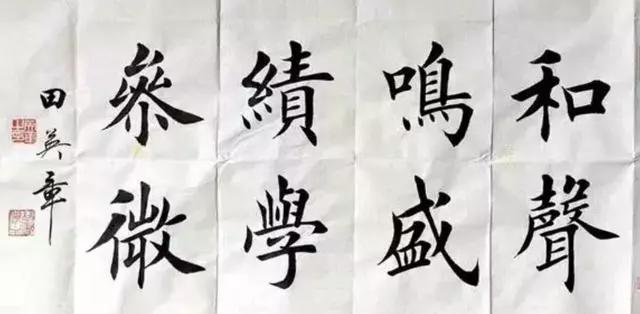 和聲
鳴盛
績學
參微
田英章